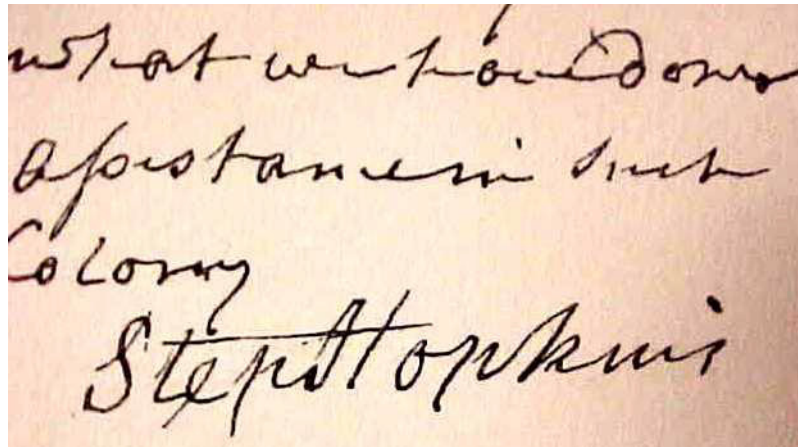 what we have Done
assistance in such
Colony
Step Hopkins